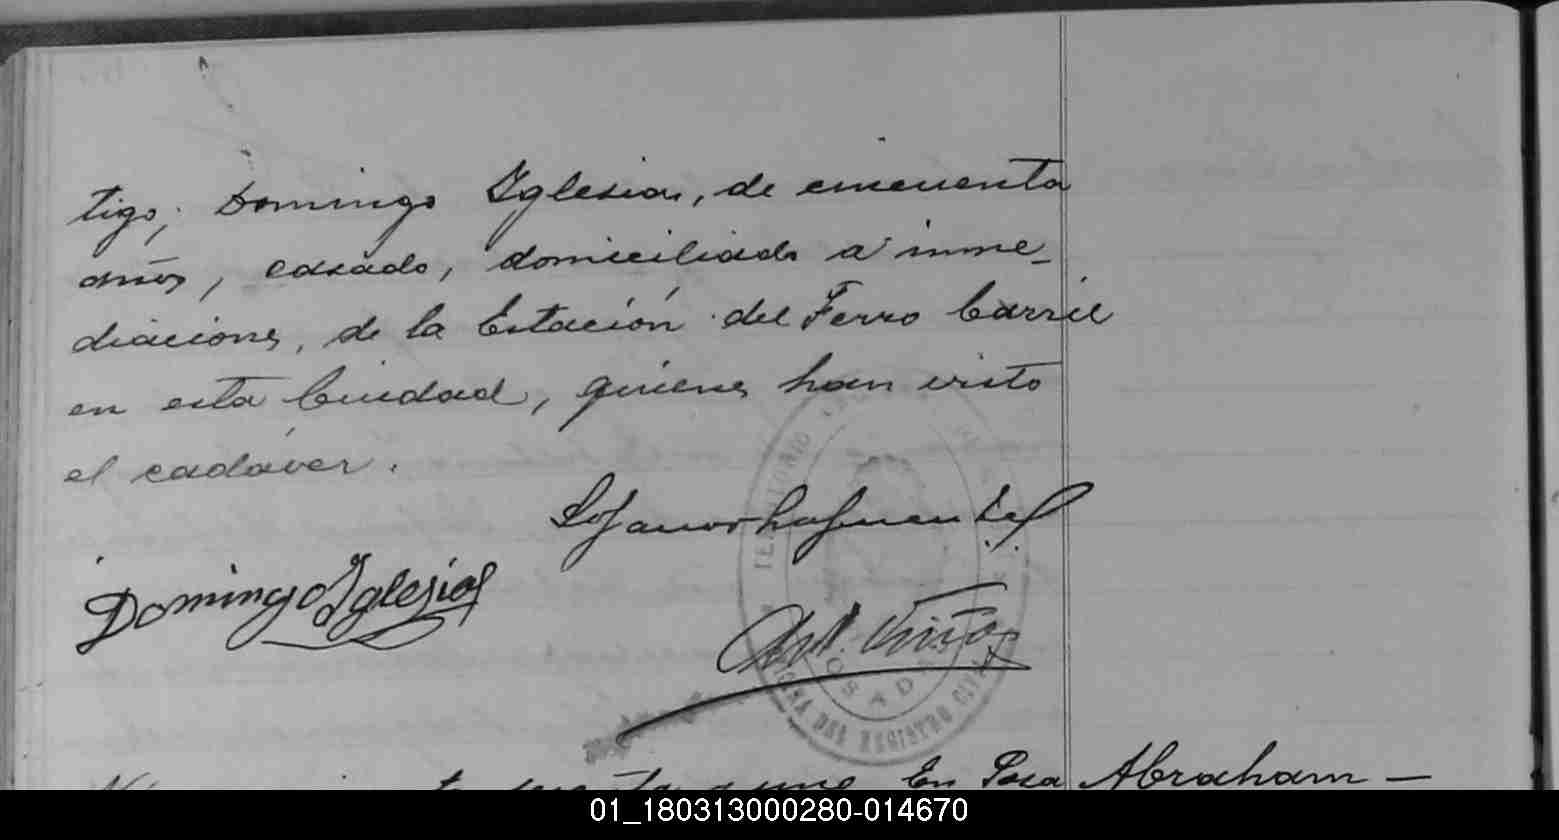 tigo, Domingo Iglesias, de cincuenta
años, casado, domiciliado a inme-
diaciones, de la Estación del Ferro Carril
en esta Ciudad, quienes han visto
el cadáver.
Domingo Iglesias
TERRITORIO
POSADAS
OFICINA DEL REGISTRO CIVIL
En Posa Abraham —
01_180313000280-014670